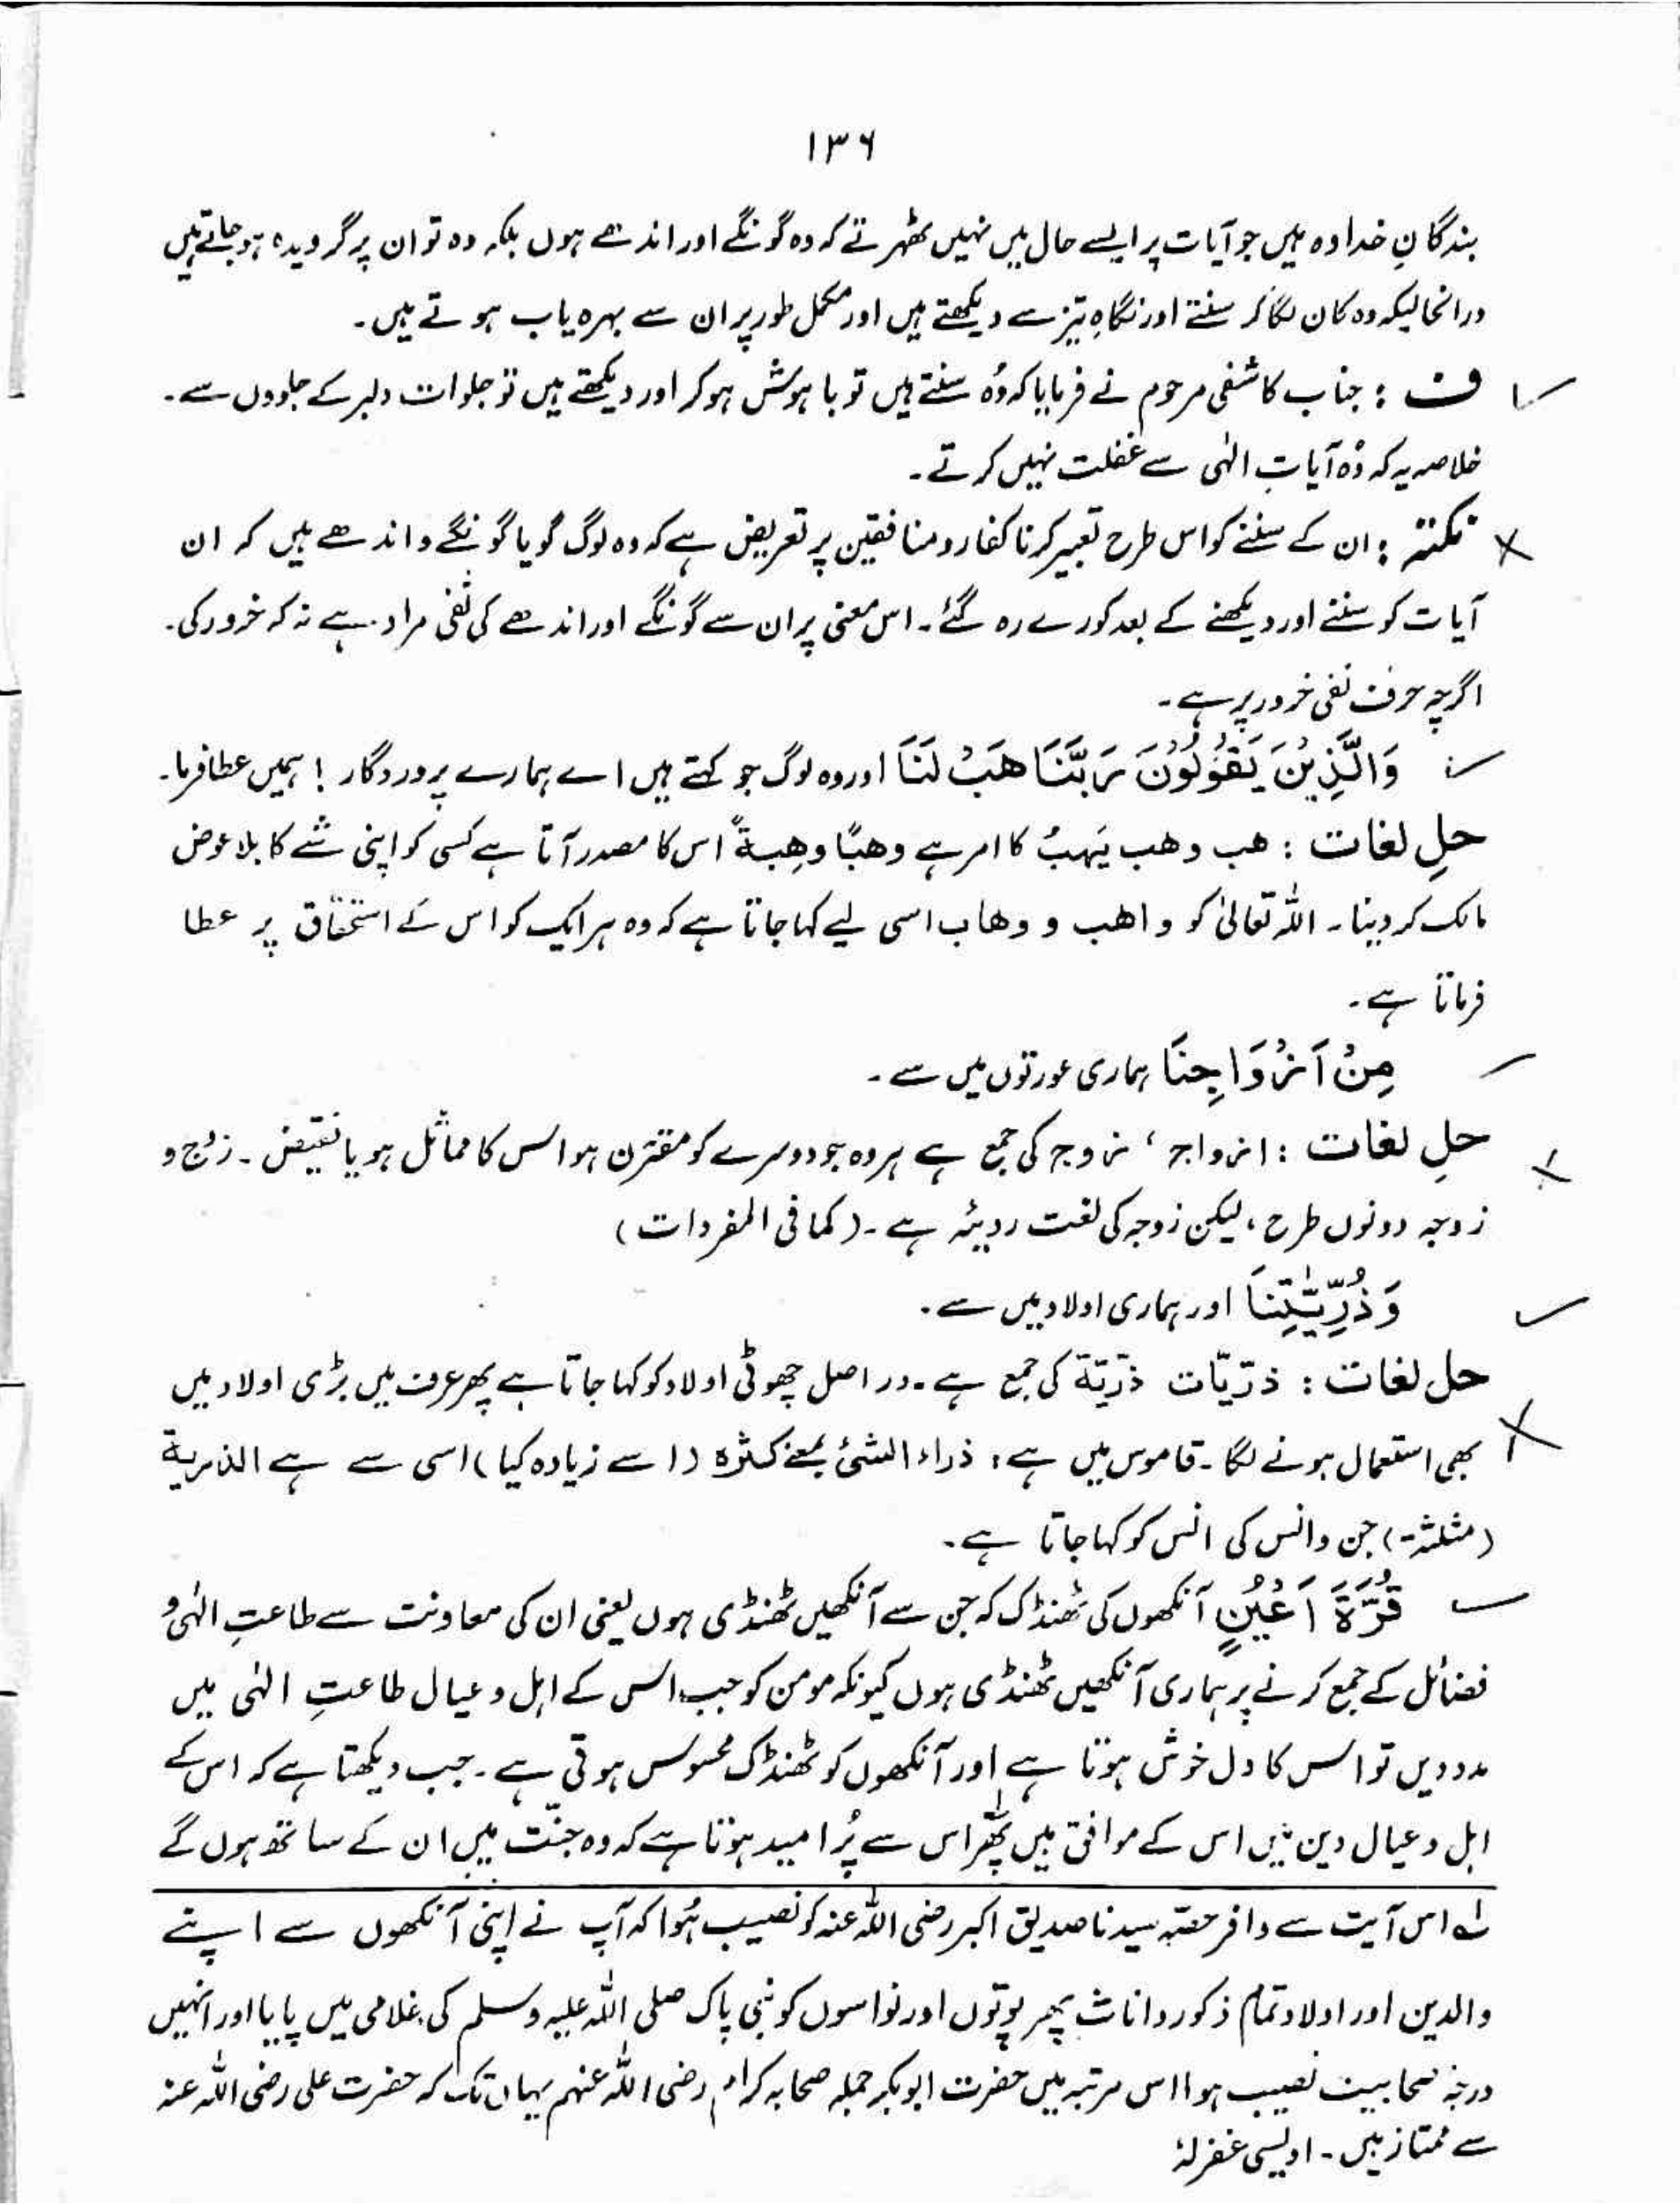 ۱۳۶
بندگانِ خدا وہ ہیں جو آیات پر ایسے حال میں نہیں ٹھہرتے کہ وہ گونگے اور اندھے ہوں بلکہ وہ تو ان پر گرویدہ ہو جاتے ہیں
درانحالیکہ وہ کان لگا کر سنتے اور نگاہِ تیز سے دیکھتے ہیں اور مکمل طور پر ان سے بہرہ یاب ہوتے ہیں۔
ف : جناب کاشفی مرحوم نے فرمایا کہ وُہ سنتے ہیں تو با ہوش ہو کر اور دیکھتے ہیں تو جلوات دلبر کے جلووں سے۔
خلاصہ یہ کہ وُہ آیاتِ الٰہی سے غفلت نہیں کرتے۔
نکتہ : ان کے سننے کو اس طرح تعبیر کرنا کفار و منافقین پر تعریض ہے کہ وہ لوگ گویا گونگے و اندھے ہیں کہ ان
آیات کو سننے اور دیکھنے کے بعد کورے رہ گئے۔ اس معنی پر ان سے گونگے اور اندھے کی نفی مراد ہے نہ کہ خرور کی۔
اگرچہ حرف نفی خرور پر ہے۔
وَالَّذِیْنَ یَقُوْلُوْنَ رَبَّنَا ھَبْ لَنَا اور وہ لوگ جو کہتے ہیں اے ہمارے پروردگار ! ہمیں عطا فرما۔
حلِ لغات : ھب وھب یَہبُ کا امر ہے وھبًا وھِبةً اس کا مصدر آتا ہے کسی کو اپنی شے کا بلا عوض
مالک کر دینا۔ اللہ تعالیٰ کو واھب و وھاب اسی لیے کہا جاتا ہے کہ وہ ہر ایک کو اس کے استحقاق پر عطا
فرماتا ہے۔
مِنْ اَزْوَاجِنَا ہماری عورتوں میں سے۔
حلِ لغات : ازواج ، زوج کی جمع ہے ہر وہ جو دوسرے کو مقترن ہو اس کا مماثل ہو یا نقیض۔ زوج و
زوجہ دونوں طرح ، لیکن زوجہ کی لغت ردیئہ ہے۔ (کما فی المفردات)
وَذُرِّیّٰتِنَا اور ہماری اولاد میں سے۔
حل لغات : ذرّیّات ذرّیّة کی جمع ہے۔ در اصل چھوٹی اولاد کو کہا جاتا ہے پھر عرف میں بڑی اولاد میں
بھی استعمال ہونے لگا۔ قاموس میں ہے : ذراء الشئ بمعنے کثرہ (اسے زیادہ کیا) اسی سے ہے الذریة
(مثلثہ) جن و انس کی انس کو کہا جاتا ہے۔
قُرَّةَ اَعْیُنٍ آنکھوں کی ٹھنڈک کہ جن سے آنکھیں ٹھنڈی ہوں یعنی ان کی معاونت سے طاعتِ الٰہی و
فضائل کے جمع کرنے پر ہماری آنکھیں ٹھنڈی ہوں کیونکہ مومن کو جب اس کے اہل و عیال طاعتِ الٰہی میں
مدد دیں تو اس کا دل خوش ہوتا ہے اور آنکھوں کو ٹھنڈک محسوس ہوتی ہے۔ جب دیکھتا ہے کہ اس کے
اہل و عیال دین میں اس کے موافق ہیں پھر اس سے پُر امید ہوتا ہے کہ وہ جنّت میں ان کے ساتھ ہوں گے
لے اس آیت سے وافر حصّہ سیدنا صدیق اکبر رضی اللہ عنہ کو نصیب ہُوا کہ آپ نے اپنی آنکھوں سے اپنے
والدین اور اولاد تمام ذکور و اناث پھر پوتوں اور نواسوں کو نبی پاک صلی اللہ علیہ وسلم کی غلامی میں پایا اور انہیں
درجۂ صحابیت نصیب ہوا اس مرتبہ میں حضرت ابوبکر جملہ صحابہ کرام رضی اللہ عنہم یہاں تک کہ حضرت علی رضی اللہ عنہ
سے ممتاز ہیں۔ اویسی غفرلہٗ